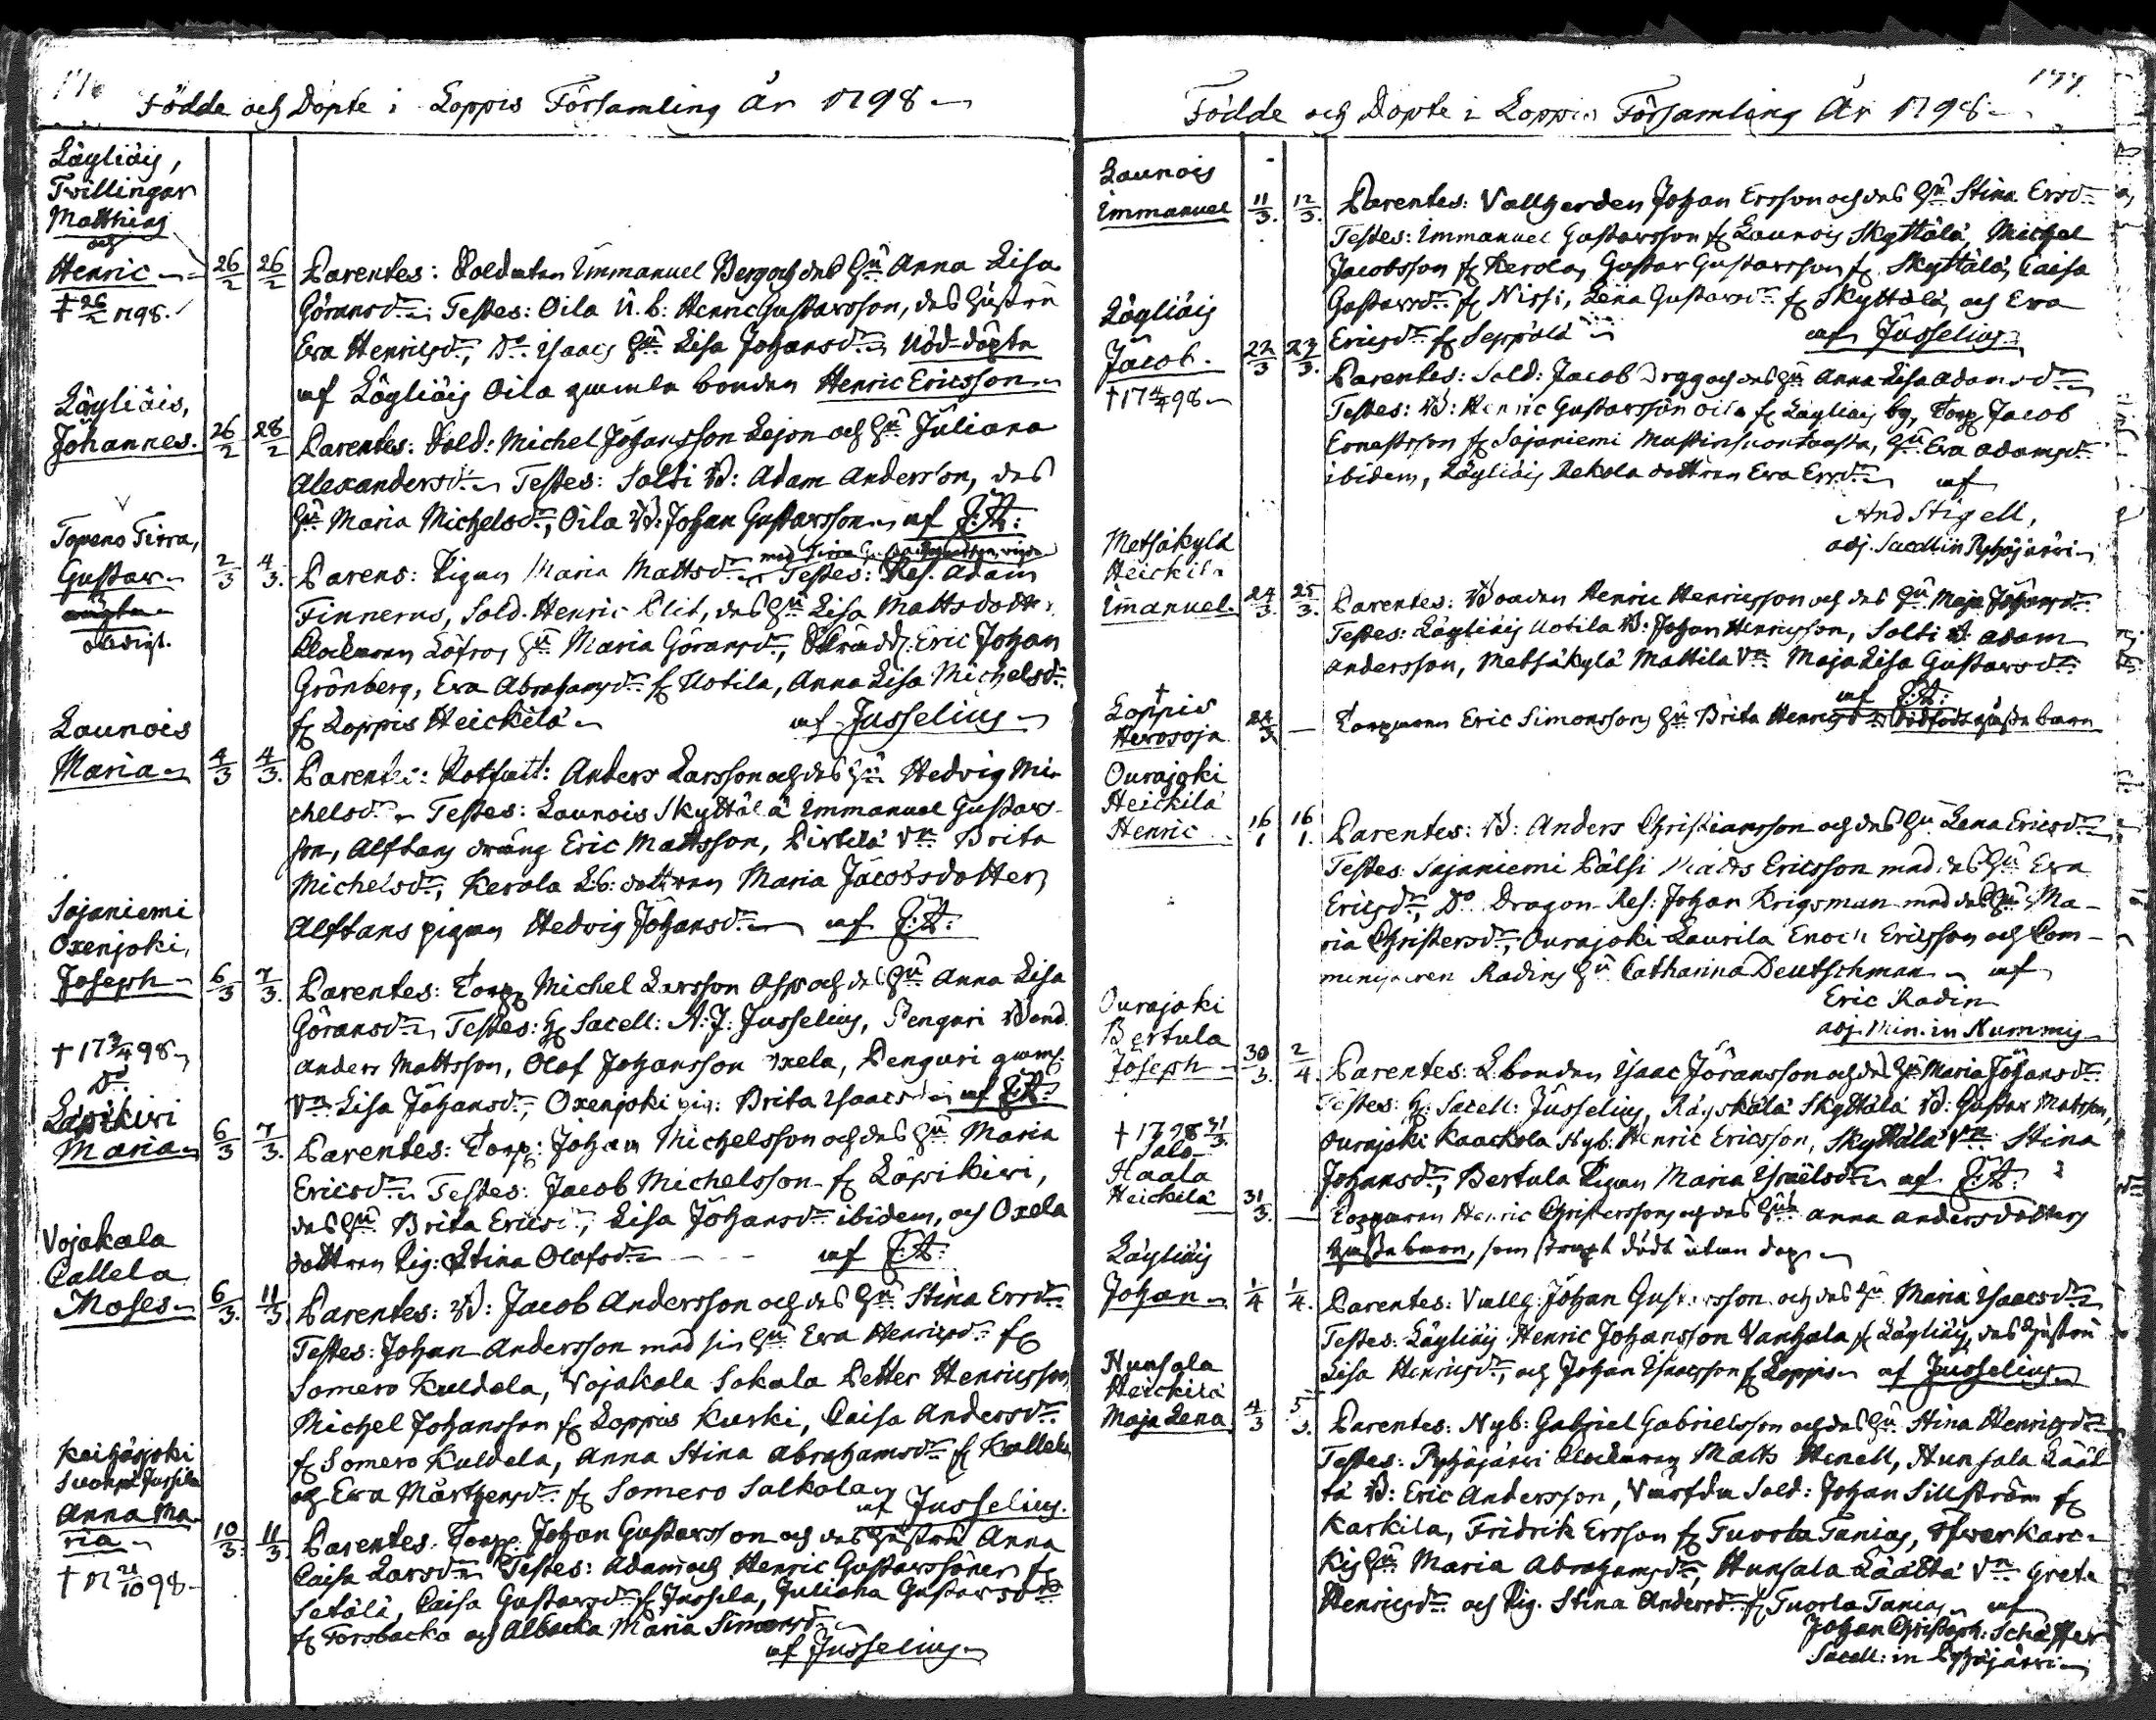 Födde och Döpte i Loppis Församling År 1798
Läyliäis,
Twillingar
Matthias
och
Henric 26/2 26/2 Parentes: Soldaten Immanuel Berg och des Hu Anna Lisa
† 26/2 1798. Göransdr. Testes: Oila U. b: Henric Gustavsson, des Hustru
Eva Henricsdr, Do Isaacs Hu Lisa Johansdr Nöd-döpta
af Läyliäis Oila gamla bonden Henric Ericsson
Läyliäis,
Johannes. 26/2 28/2 Parentes: Sold: Michel Johansson Lejon och Hu Juliana
Alexandersdr Testes: Salsi B: Adam Andersson, des
Hu Maria Michelsdr, Oila B: Johan Gustavsson af E:A:
Topeno Tirra,
Gustav 2/3 4/3. Parens: Pigan Maria Mattsdr Testes: Res. Adam
Finnerus, Sold. Henric Plit, des Hu Lisa Mattsdotter
Klockaren Löfros Hu Maria Göransdr, Skrädd. Eric Johan
Grönberg, Eva Abrahamsdr f Uotila, Anna Lisa Michelsdr
f Loppis Heickilä af Jusselius
Launois
Maria 4/3 4/3. Parentes: Rotfatt: Anders Larsson och des Hu Hedvig Mi-
chelsdr Testes: Launois Skyttälä Immanuel Gustavs-
son, Alftans dräng Eric Mattsson, Pirtilä Vn Brita
Michelsdr, Kerola L:b: dottren Maria Jacobsdotter,
Alftans pigan Hedvig Johansdr af E:A:
Sajaniemi
Oxenjoki,
Joseph 6/3 7/3. Parentes: Torp Michel Larsson Asp och des Hu Anna Lisa
Göransdr Testes: H Sacell: A:J: Jusselius, Penguri Bond.
† 17 3/4 98 Anders Mattsson, Olof Johansson Oxela, Penguri gamf.
Do Vn Lisa Johansdr, Oxenjoki pig: Brita Isaacsdr af E:A:
Läpikivi
Maria 6/3 7/3. Parentes: Torp: Johan Michelsson och des Hu Maria
Ericsdr Testes: Jacob Michelsson f Läpikivi,
des Hu Brita Ericsdr, Lisa Johansdr ibidem, och Oxela
dottren Pig: Stina Olofsdr af E:A:
Vojakala
Callela
Moses 6/3. 11/3 Parentes: B: Jacob Andersson och des Hu Stina Ersdr
Testes: Johan Andersson med sin Hu Eva Henricsdr f
Somero Kuldela, Vojakala Sakala Petter Henricsson,
Michel Johansson f Loppis Kurki, Caisa Andersdr
f Somero Kuldela, Anna Stina Abrahamsdr f Kallela
och Eva Mårthensdr f Somero Salkola
af Jusselius.
Kaihäsjoki
Anna Ma-
ria 10/3. 11/3 Parentes: Torp. Johan Gustavsson och des Hustru Anna
† 17 21/10 98 Caisa Larsdr Testes: Adam och Henric Gustavssöner f
Setälä, Caisa Gustavsdr f Jussila, Juliana Gustavsdr
f Forsbacka och Albacka Maria Simonsdr
af Jusselius
177
Födde och Döpte i Loppis Församling År 1798
Launois
Immanuel 11/3. 12/3. Parentes: Vallherden Johan Ersson och des Hu Stina Ersdr
Testes: Immanuel Gustavsson f Launois Skyttälä, Michel
Jacobsson f Kerola, Gustav Gustavsson f Skyttälä, Caisa
Gustavsdr f Nissi, Lena Gustavsdr f Skyttälä, och Eva
Ericsdr f Seppälä af Jusselius
Läyliäis
Jacob. 22/3 23/3. Parentes: Sold: Jacob Drygg och des Hu Anna Lisa Adamsdr
† 17 4/4 98 Testes: B: Henric Gustavsson Oila f Läyliäis by, Torp Jacob
Ernestsson f Sajaniemi Mustinsuonlausta, Hu Eva Adamsdr
ibidem, Läyliäis Rekola dottren Eva Ersdr af
And Stigell,
adj. Sacell in Pyhäjärvi
Metsäkylä
Heickilä
Immanuel. 24/3. 25/3. Parentes: Bonden Henric Henricsson och des Hu Maja Johansdr
Testes: Läyliäis Uotila B: Johan Henricsson, Salsi B: Adam
Andersson, Metsäkylä Mattila Vn Maja Lisa Gustavsdr
af E:A:
†
Loppis
Herosoja 24/3 — Torparen Eric Simonssons Hu Brita Henricsdrs dödfödt gosse barn
Ourajoki
Heickilä
Henric 16/1 16/1. Parentes: B: Anders Christiansson och des Hu Lena Ericsdr
Testes Sajaniemi Pälsi Matts Ericsson med des Hu Eva
Ericsdr, Do Dragon-Res: Johan Krigsman med des Hu Ma-
ria Christersdr, Ourajoki Laurila Enoch Ericsson och Com-
ministren Radins Hu Catharina Deutschman af
Eric Radin
adj. Min. in Nummis
Ourajoki
Bertula
Joseph 30/3. 2/4. Parentes: L:bonden Isaac Jöransson och des Hu Maria Johansdr
Testes: H: Sacell: Jusselius, Räyskälä Skyttälä B: Gustav Matsson,
† 1798 31/3 Ourajoki Kaackola Nyb. Henric Ericsson, Skyttälä Vn Stina
Johansdr, Bertula Pigan Maria Israelsdr af E:A:
Salo
Haala
Heickilä 31/3. — Torparen Henric Christerssons och des Hus Anna Andersdotters
gosse barn, som strapt dödt utan dop
Läyliäis
Johan 1/4 1/4. Parentes: Vallh: Johan Gustavsson och des Hu Maria Isaacsdr
Testes: Läyliäis Henric Johansson Vanhala f Läyliäis, des Hustru
Lisa Henricsdr, och Johan Isaacsson f Loppis af Jusselius
Hunsala
Heickilä
Maja Lena 4/3 5/3. Parentes: Nyb: Gabriel Gabrielsson och des Hu Stina Henricsdr
Testes: Pyhäjärvi Klockaren Matts Henell, Hunsala Lääl-
tä B: Eric Andersson, Värfda Sold: Johan Sillström f
Karkila, Fridrik Ersson f Tuorla Tanias, Öfwer Karc-
kis Hu Maria Abrahamsdr, Hunsala Läältä Vn Greta
Henricsdr och Pig. Stina Andersdr f Tuorla Tanias af
Johan Christoph: Schäffer
Sacell: in Pyhäjärvi